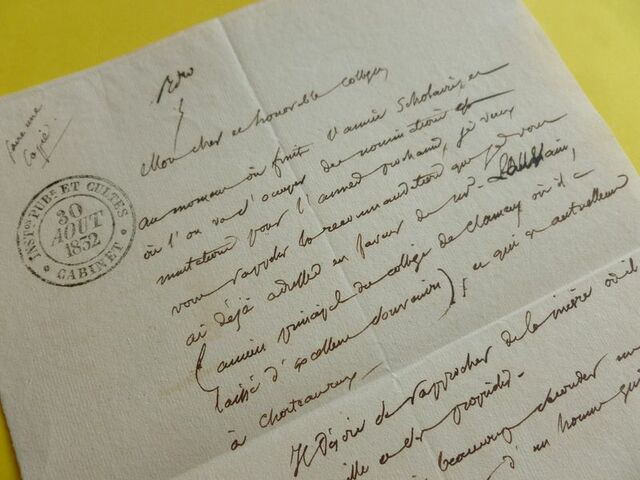 faire une
Copie
INSTon PUBe ET CULTES
30
AOUT
1832
CABINET
Mon cher et honorable collègue,
au moment où finit l'année Scholaire, et
où l'on va s'occuper des nominations et
mutations pour l'année prochaine, je veux
vous rappeler la recommandation que je vous
ai déjà adressée en faveur de mr.
(ancien principal du collège de Clamecy où il a
laissé d'excellents souvenirs) et qui est actuellement
à Chateauroux.
Il désire se rapprocher de la nièvre où il
et des propriétés.
beaucoup
d'un homme qui